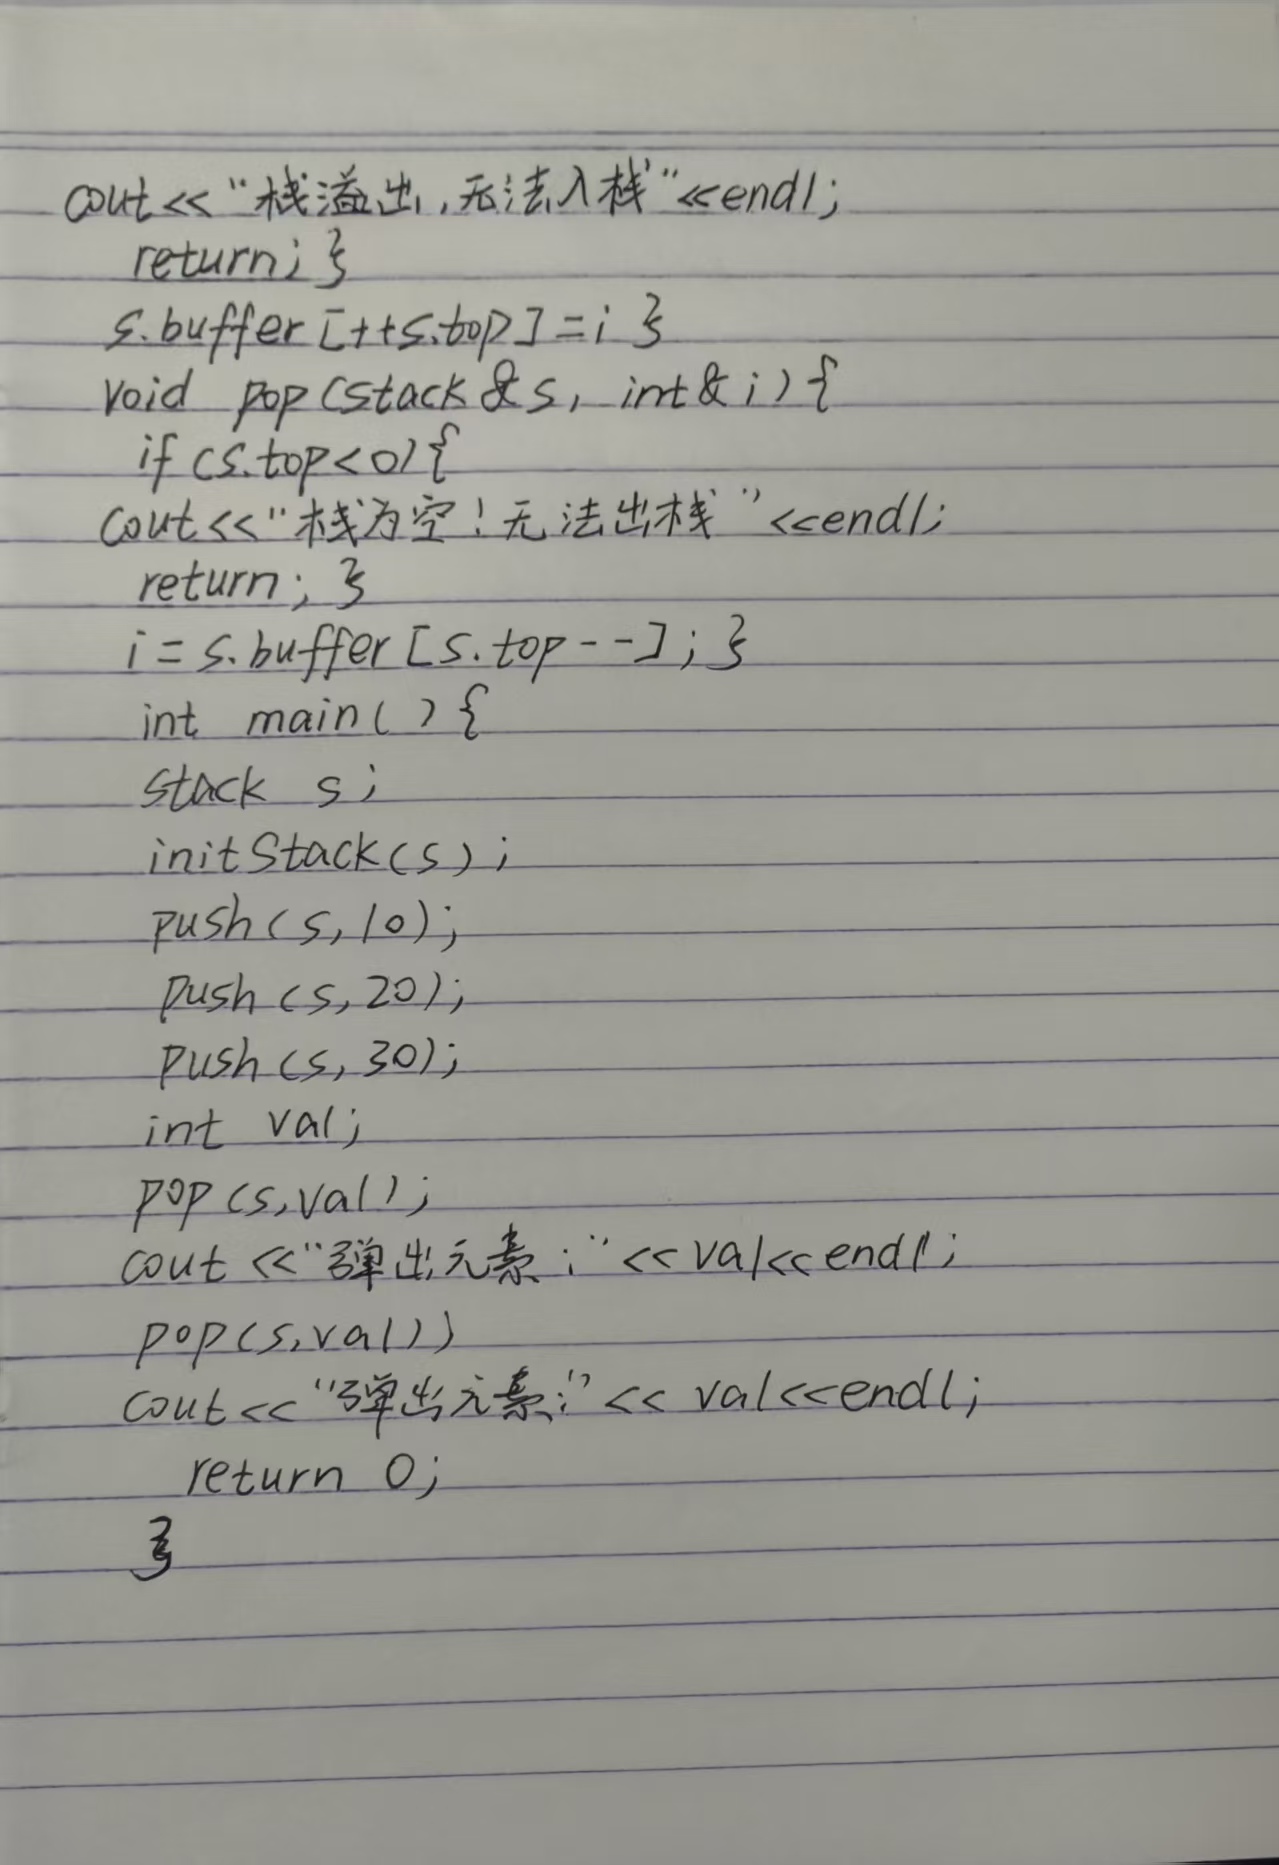 cout<<"栈溢出,无法入栈"<<endl;
return; }
s.buffer[++s.top]=i }
void pop(stack&s, int&i){
if(s.top<0){
cout<<"栈为空!无法出栈"<<endl;
return; }
i=s.buffer[s.top--]; }
int main(){
stack s;
initStack(s);
push(s,10);
push(s,20);
push(s,30);
int val;
pop(s,val);
cout<<"弹出元素:"<<val<<endl;
pop(s,val))
cout<<"弹出元素:"<< val<<endl;
return 0;
}